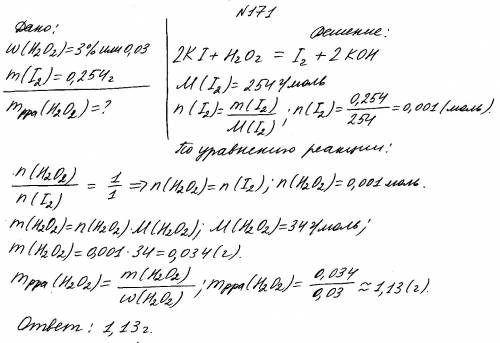 №171
Дано:
w(H₂O₂)=3% или 0,03
m(I₂)=0,254г
mрра(H₂O₂)=?
Решение:
2KI+H₂O₂ = I₂+2KOH
M(I₂)=254 г/моль
n(I₂)=m(I₂)/M(I₂); n(I₂)=0,254/254=0,001(моль).
По уравнению реакции:
n(H₂O₂)/n(I₂) = 1/1 ⇒ n(H₂O₂)=n(I₂); n(H₂O₂)=0,001 моль.
m(H₂O₂)=n(H₂O₂)·M(H₂O₂); M(H₂O₂)=34 г/моль;
m(H₂O₂)=0,001·34=0,034(г).
mрра(H₂O₂)=m(H₂O₂)/w(H₂O₂); mрра(H₂O₂)=0,034/0,03≈1,13(г).
Ответ: 1,13г.